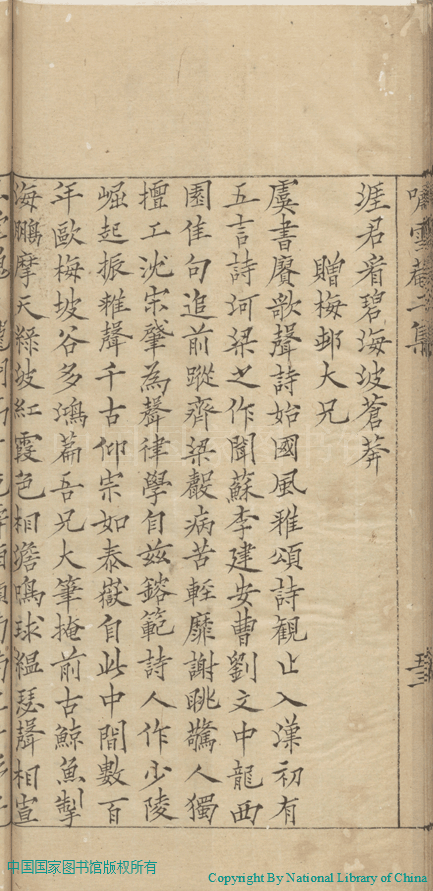 嘯雪菴二集
涯君看碧海波蒼莽
贈梅邨大兄
虞書賡歌聲詩始國風雅頌詩観止入漢初有
五言詩河梁之作聞蘇李建安曹劉文中龍西
園佳句追前蹤齊梁聲病苦輕靡謝眺驚人獨
擅工沈宋肇為聲律學自兹鎔範詩人作少陵
崛起振雅聲千古仰宗如泰嶽自此中間數百
年歐梅坡谷多鴻篇吾兄大筆掩前古鯨魚掣
海鵬摩天綠波紅霞色相澹鳴球緼瑟聲相宣
中国国家图书馆版权所有
Copyright By National Library of China